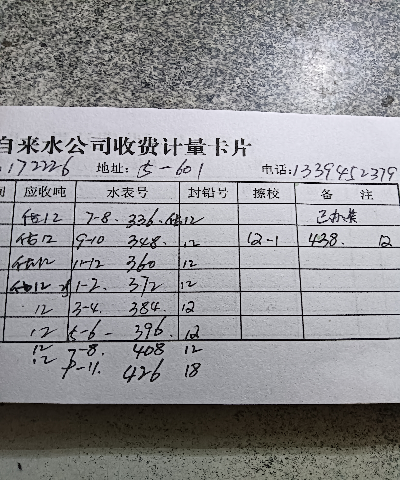 自来水公司收费计量卡片
:172226 地址: 5-601 电话:13394452379
应收吨 水表号 封铅号 擦校 备 注
估12 7-8. 336. 估12 已抄装
估12 9-10 348. 12 12-1 438. 12
估12 11-12 360 12
估12 1-2. 372 12
12 3-4. 384. 12
12 5-6. 396. 12
12 7-8. 408 12
12 9-11. 426 18